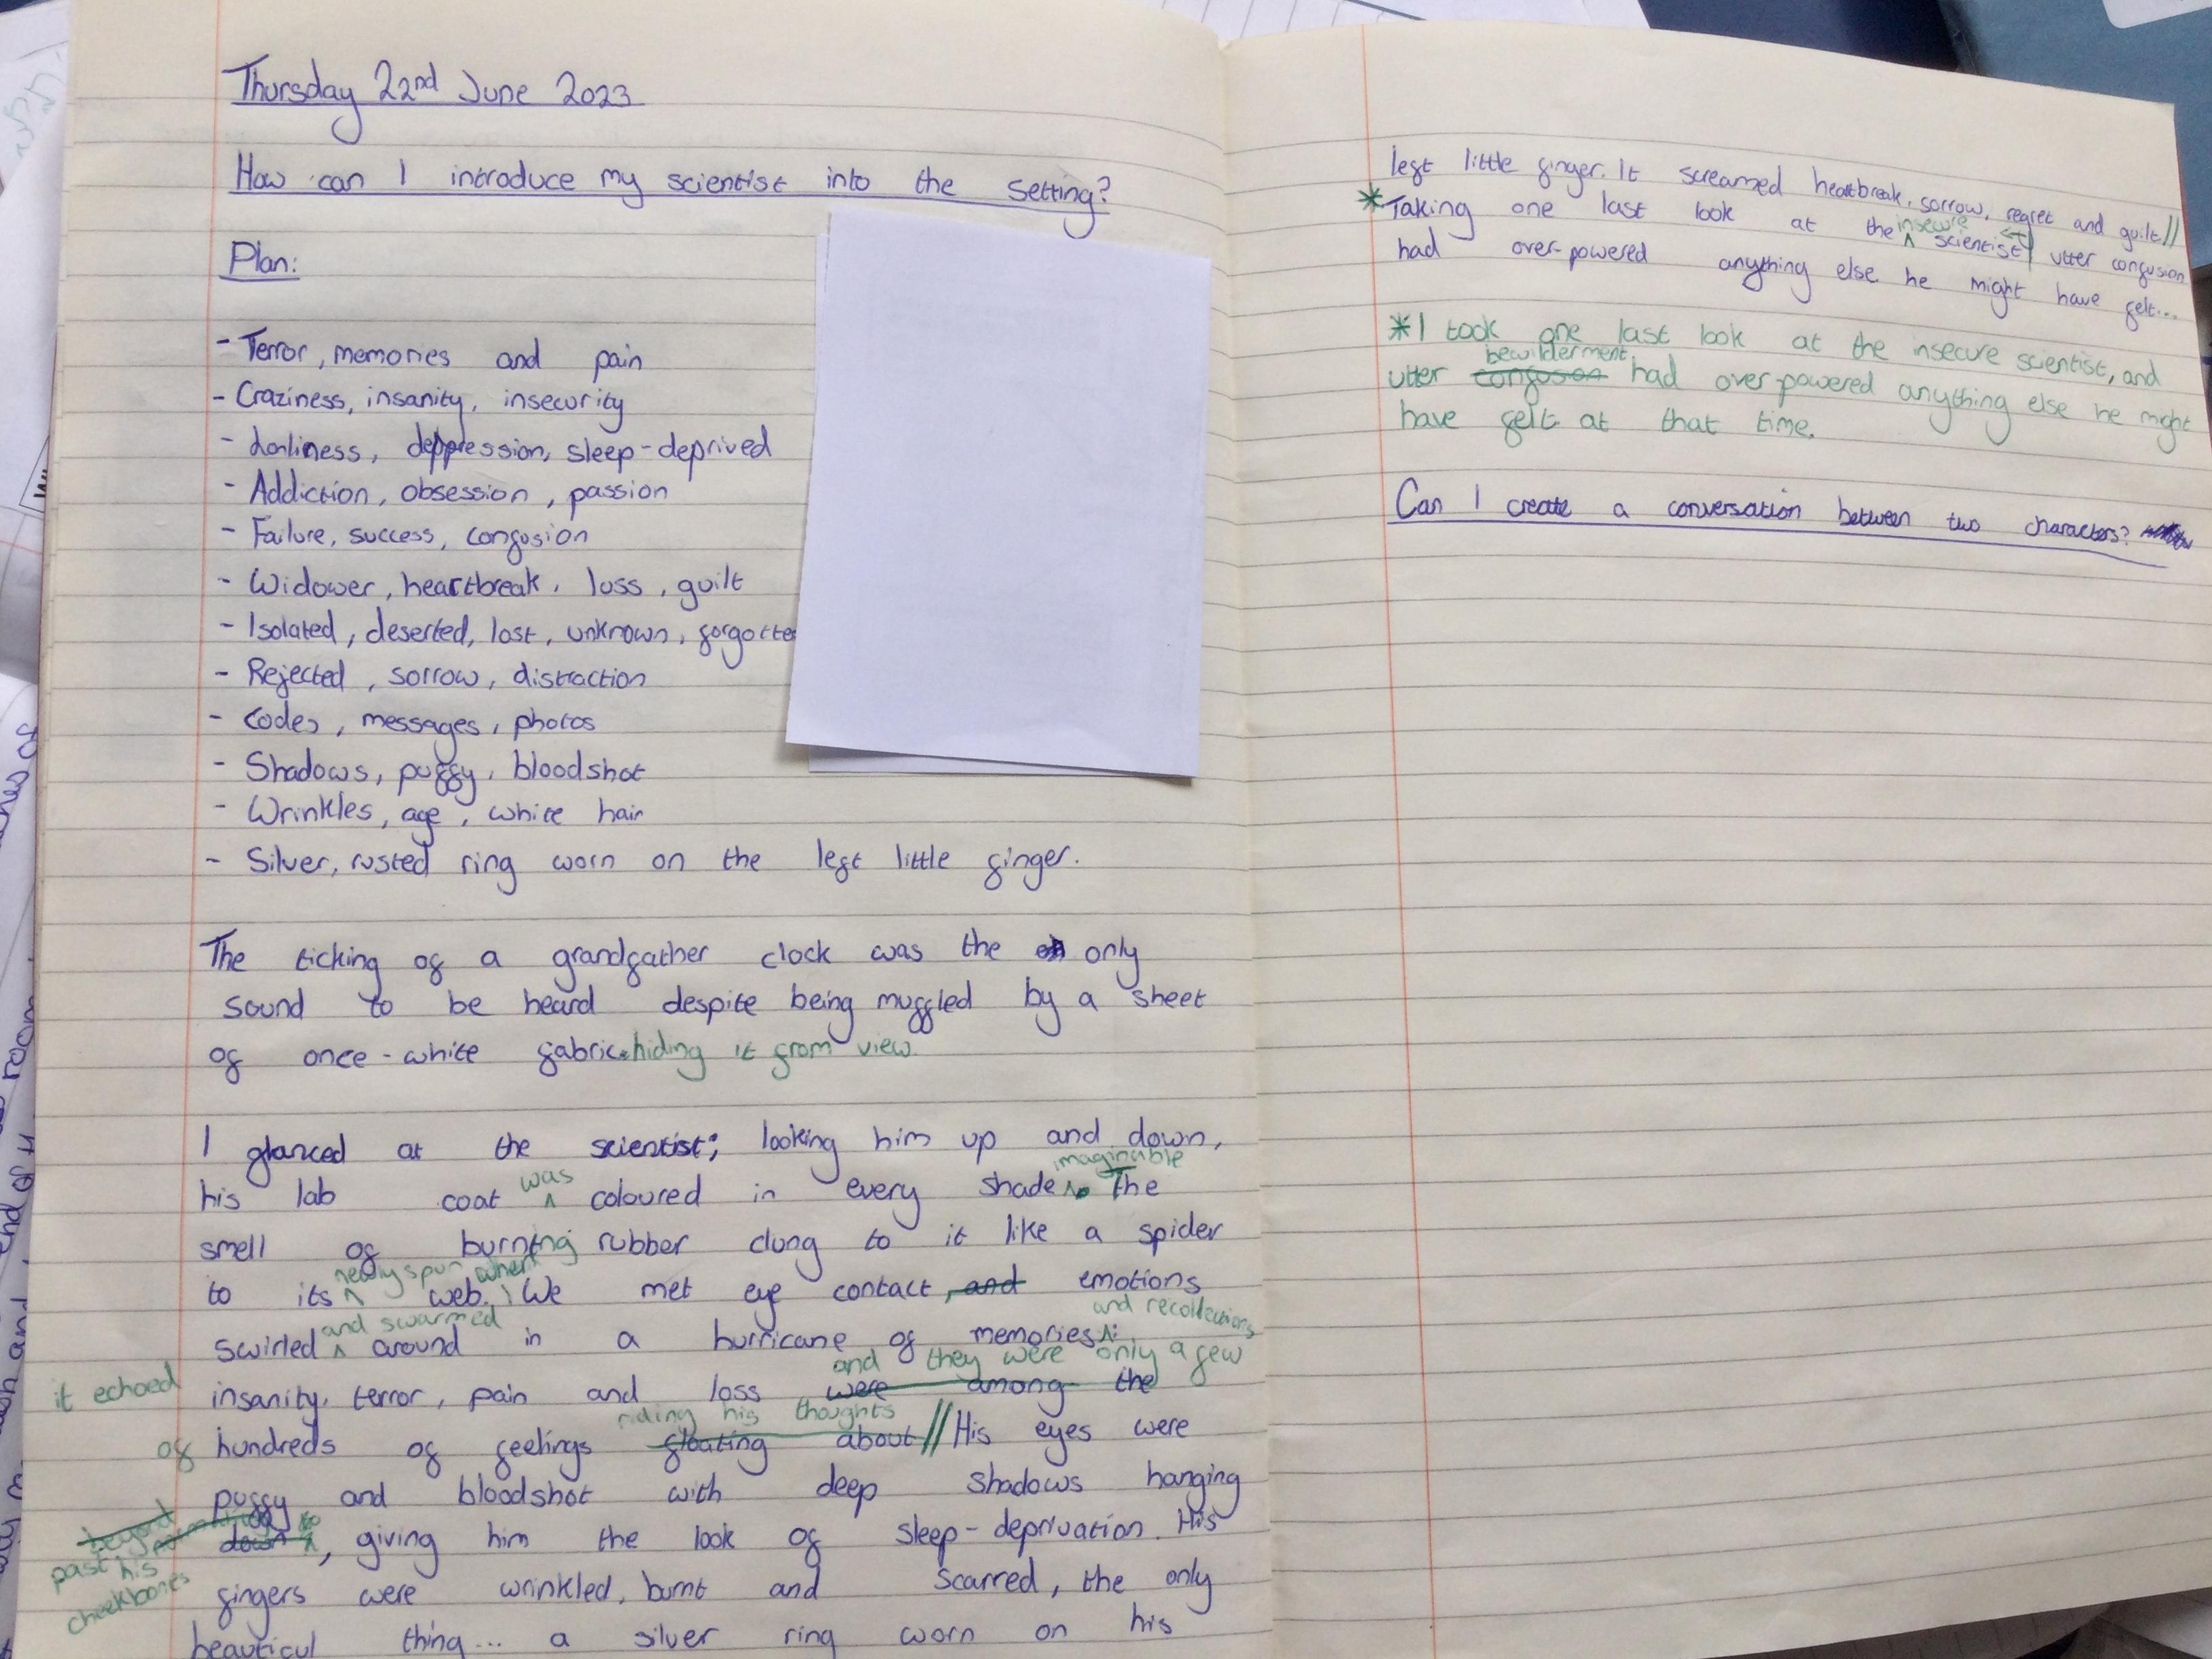 Thursday 22nd June 2023
How can I introduce my scientist into the setting?
Plan:
- Terror, memories and pain
- Craziness, insanity, insecurity
- Lonliness, deppression, sleep-deprived
- Addiction, obsession, passion
- Failure, success, confusion
- Widower, heartbreak, loss, guilt
- Isolated, deserted, lost, unknown, forgotte
- Rejected, sorrow, distraction
- Codes, messages, photos
- Shadows, puffy, bloodshot
- Wrinkles, age, white hair
- Silver, rusted ring worn on the left little finger.
The ticking of a grandfather clock was the only
sound to be heard despite being muffled by a sheet
of once-white fabric hiding it from view.
I glanced at the scientist; looking him up and down,
imaginable
his lab coat was coloured in every shade. The
smell of burning rubber clung to it like a spider
newly spun when
to its web. We met eye contact, and emotions
and swarmed and recollections
swirled around in a hurricane of memories:
and they were only a few
it echoed insanity, terror, pain and loss were among the
riding his thoughts
of hundreds of feelings floating about // His eyes were
puffy and bloodshot with deep shadows hanging
beyond
down, giving him the look of sleep-deprivation. His
past his
cheekbones
fingers were wrinkled, burnt and scarred, the only
beautiful thing... a silver ring worn on his
left little finger. It screamed heartbreak, sorrow, regret and guilt. //
insecure
*Taking one last look at the scientist, utter confusion
had over-powered anything else he might have felt...
*I took one last look at the insecure scientist, and
bewilderment
utter confuson had over powered anything else he might
have felt at that time.
Can I create a conversation between two characters?